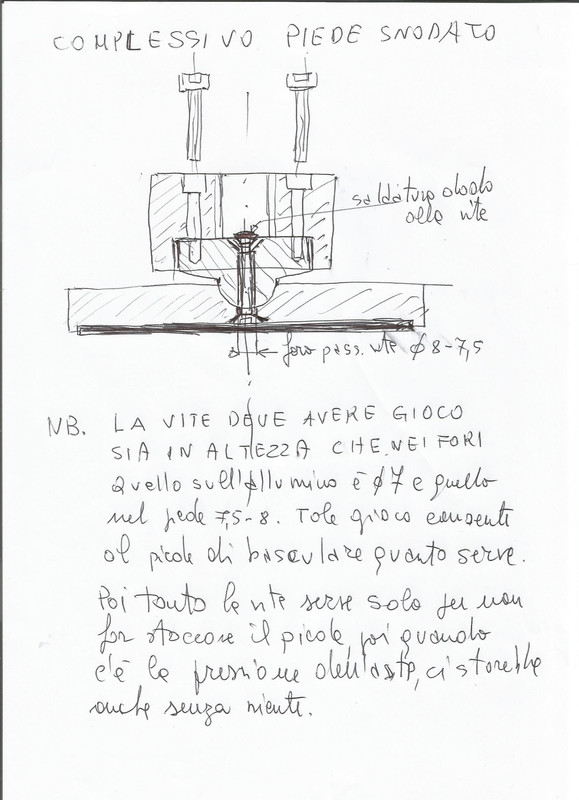 COMPLESSIVO PIEDE SNODATO
saldatura dado
alla vite
foro pass. vite ϕ 8-7,5
NB. LA VITE DEVE AVERE GIOCO
SIA IN ALTEZZA CHE NEI FORI
Quello sull'alluminio è ϕ7 e quello
nel piede 7,5-8. Tale gioco consente
al piede di basculare quanto serve.
Poi tanto la vite serve solo per non
far staccare il piede, poi quando
c'è la pressione dell'asta, ci starebbe
anche senza niente.